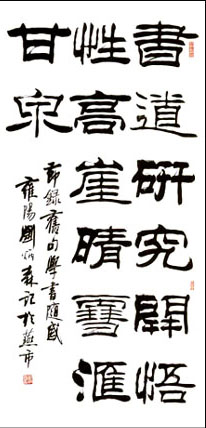 書道研究開悟
性高崖晴雪滙
甘泉
節錄舊句學書隨感
雍陽劉炳森記於燕市